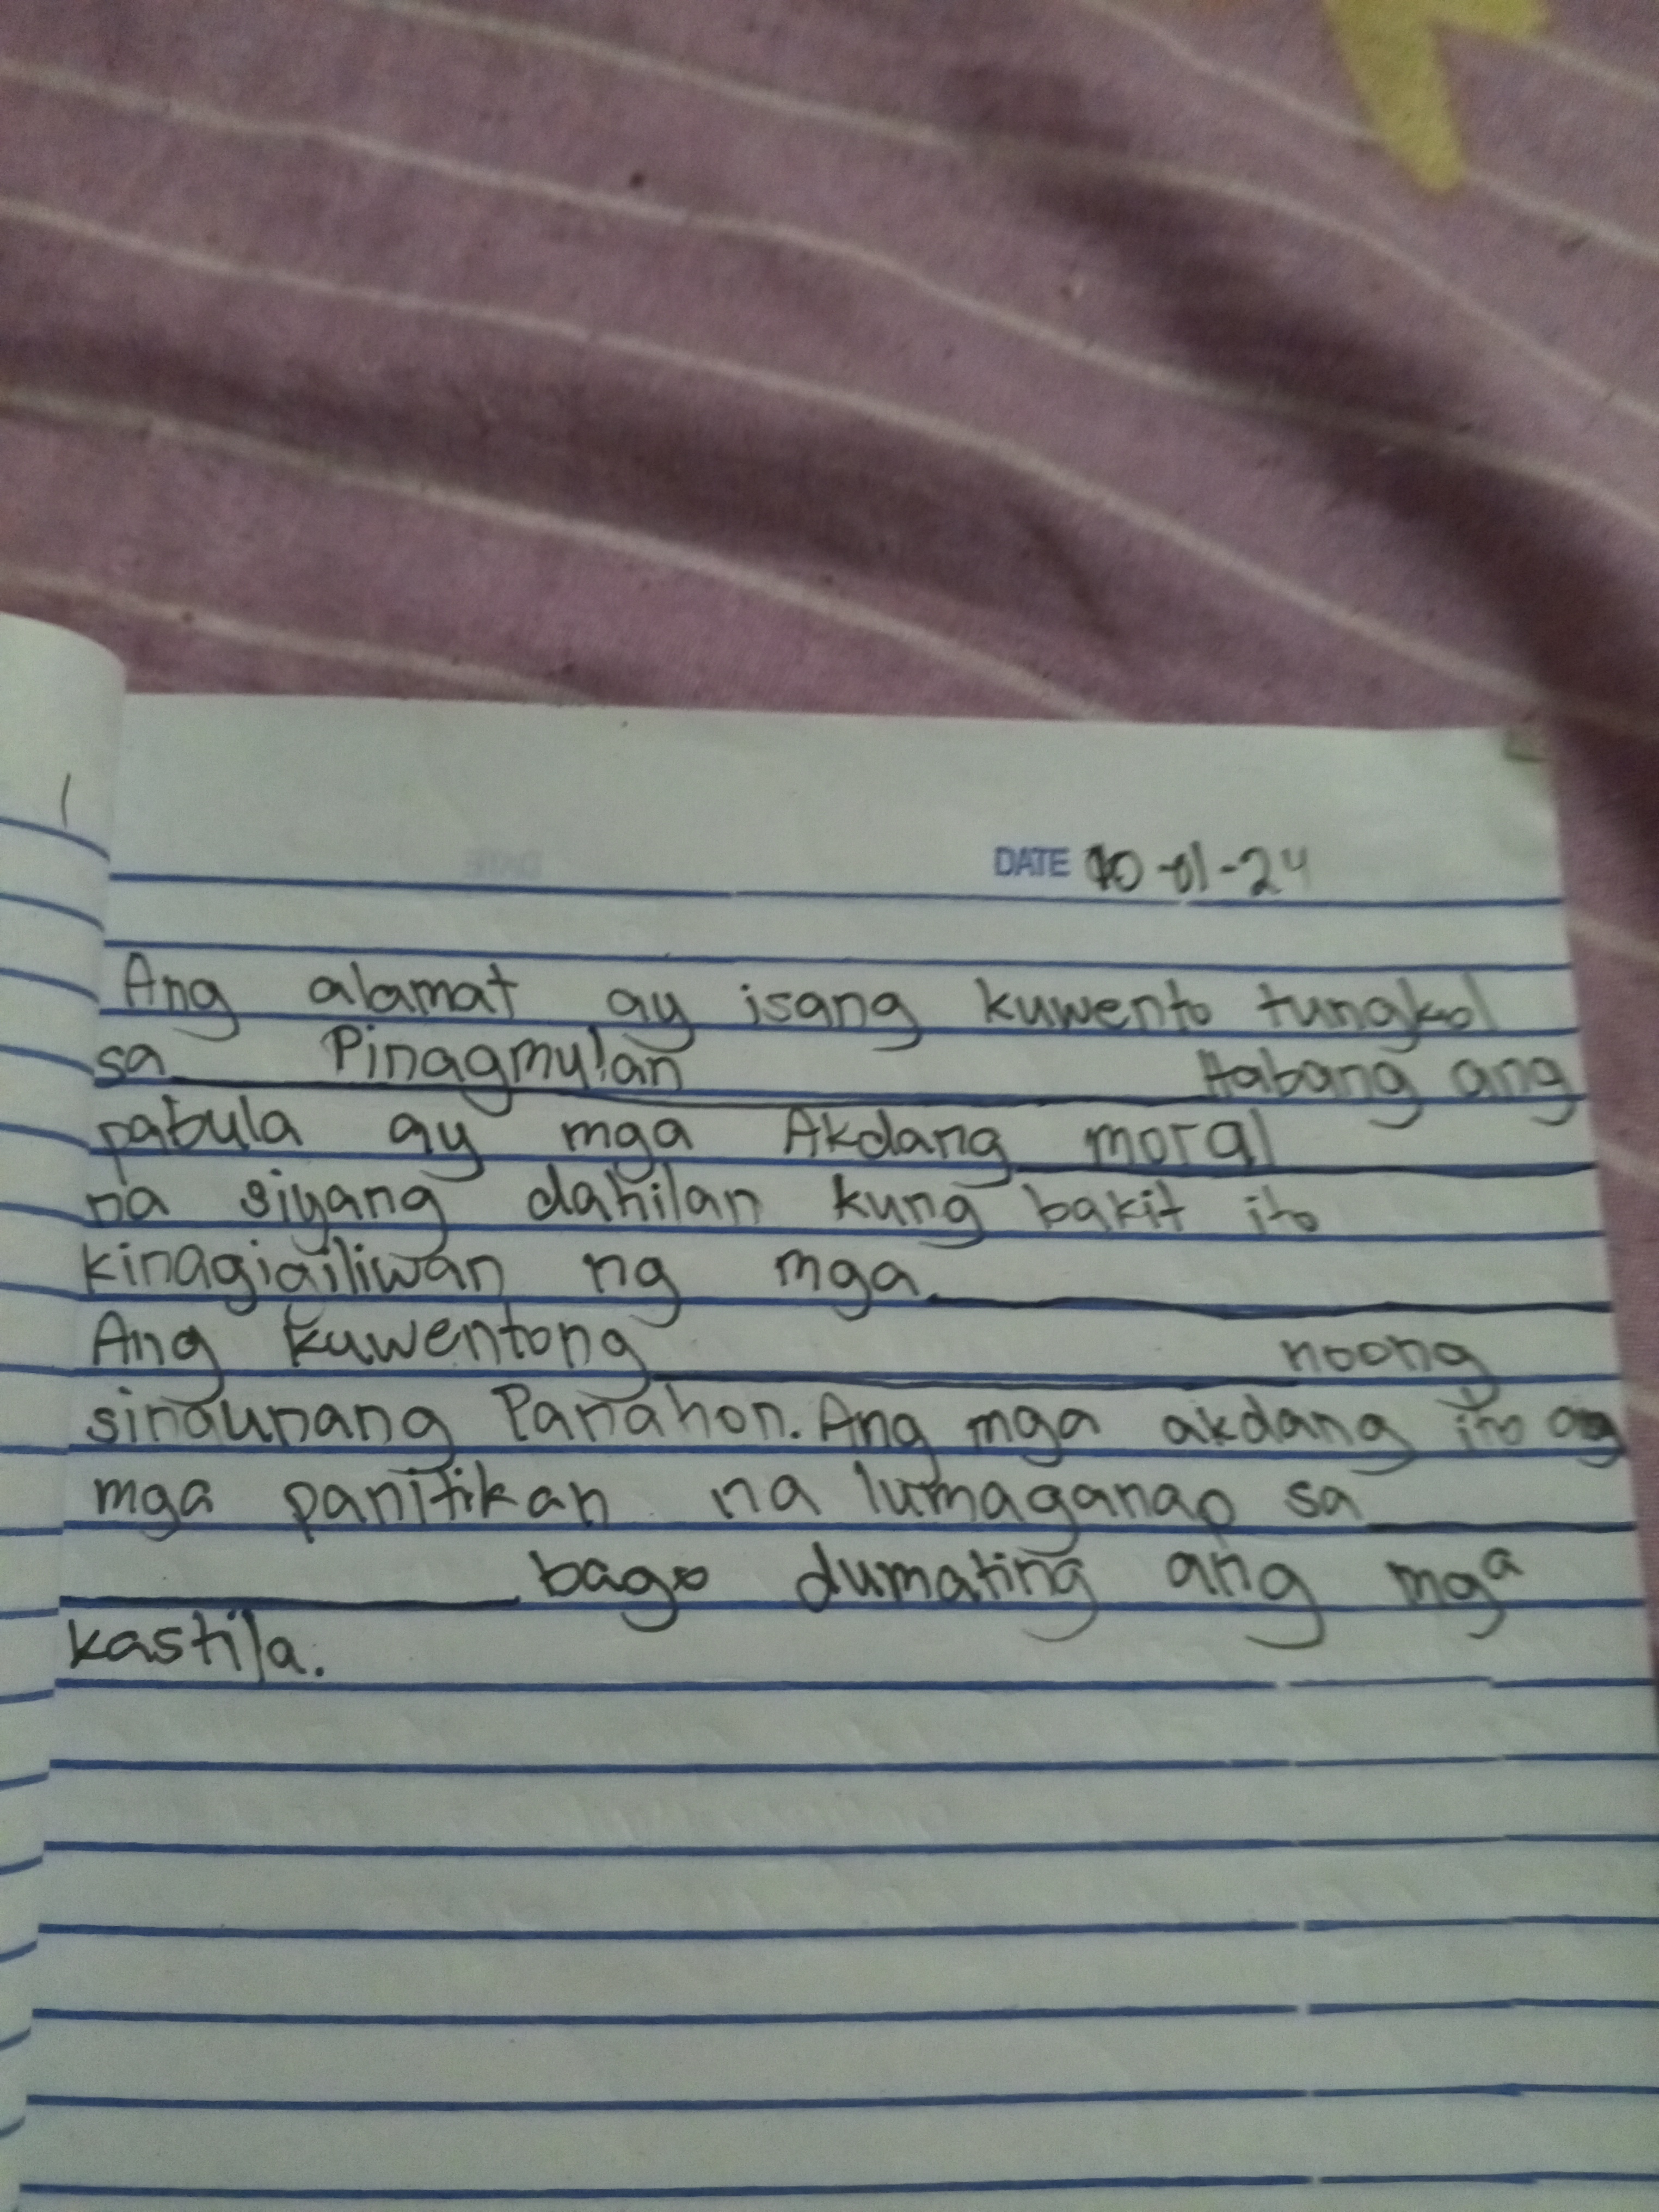 DATE 10-01-24
Ang alamat ay isang kuwento tungkol
sa Pinagmulan Habang ang
pabula ay mga Akdang moral
na siyang dahilan kung bakit ito
kinagigiliwan ng mga
Ang kuwentong noong
sinaunang Panahon. Ang mga akdang ito ay
mga panitikan na lumaganap sa
bago dumating ang mga
kastila.